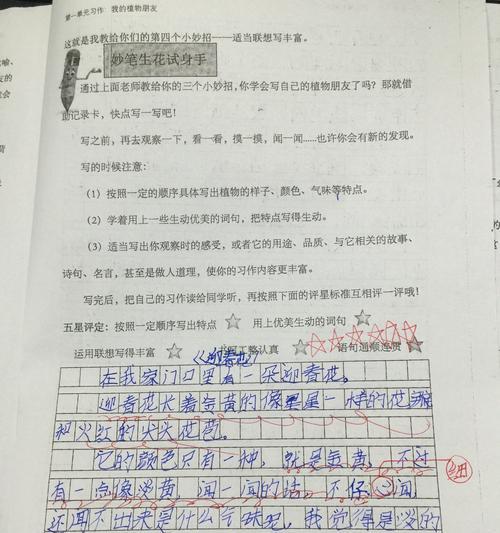 第一单元习作 我的植物朋友
这就是我教给你们的第四个小妙招——适当联想写丰富。
妙笔生花试身手
通过上面老师教给你的三个小妙招，你学会写自己的植物朋友了吗？那就借
助记录卡，快点写一写吧！
写之前，再去观察一下，看一看，摸一摸，闻一闻……也许你会有新的发现。
写的时候注意：
（1）按照一定的顺序具体写出植物的样子、颜色、气味等特点。
（2）学着用上一些生动优美的词句，把特点写得生动。
（3）适当写出你观察时的感受，或者它的用途、品质、与它相关的故事、
诗句、名言，甚至是做人道理，使你的习作内容更丰富。
写完后，把自己的习作读给同学听，再按照下面的评星标准互相评一评哦！
五星评定：按照一定顺序写出特点 用上优美生动的词句
运用联想写得丰富 书写工整认真 语句通顺连贯
《迎春花》
在我家门口里有一朵迎春花。
迎春花长着 黄的像星星一样的花
和火红的尖尖花苞。
它的颜色只有一种，就是 黄，不过
有一点像淡黄，闻一闻的话，不仔 闻，
细
还闻不出来是什么气味呢，我觉得是淡的